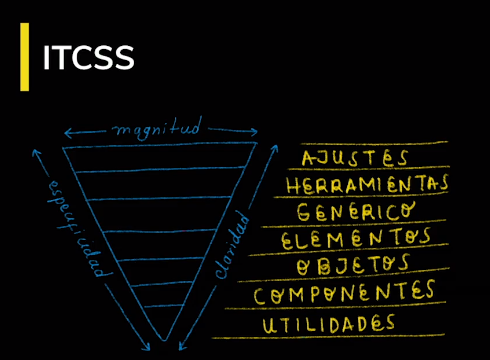 ITCSS
magnitud
especificidad
claridad
AJUSTES
HERRAMIENTAS
GENÉRICO
ELEMENTOS
OBJETOS
COMPONENTES
UTILIDADES